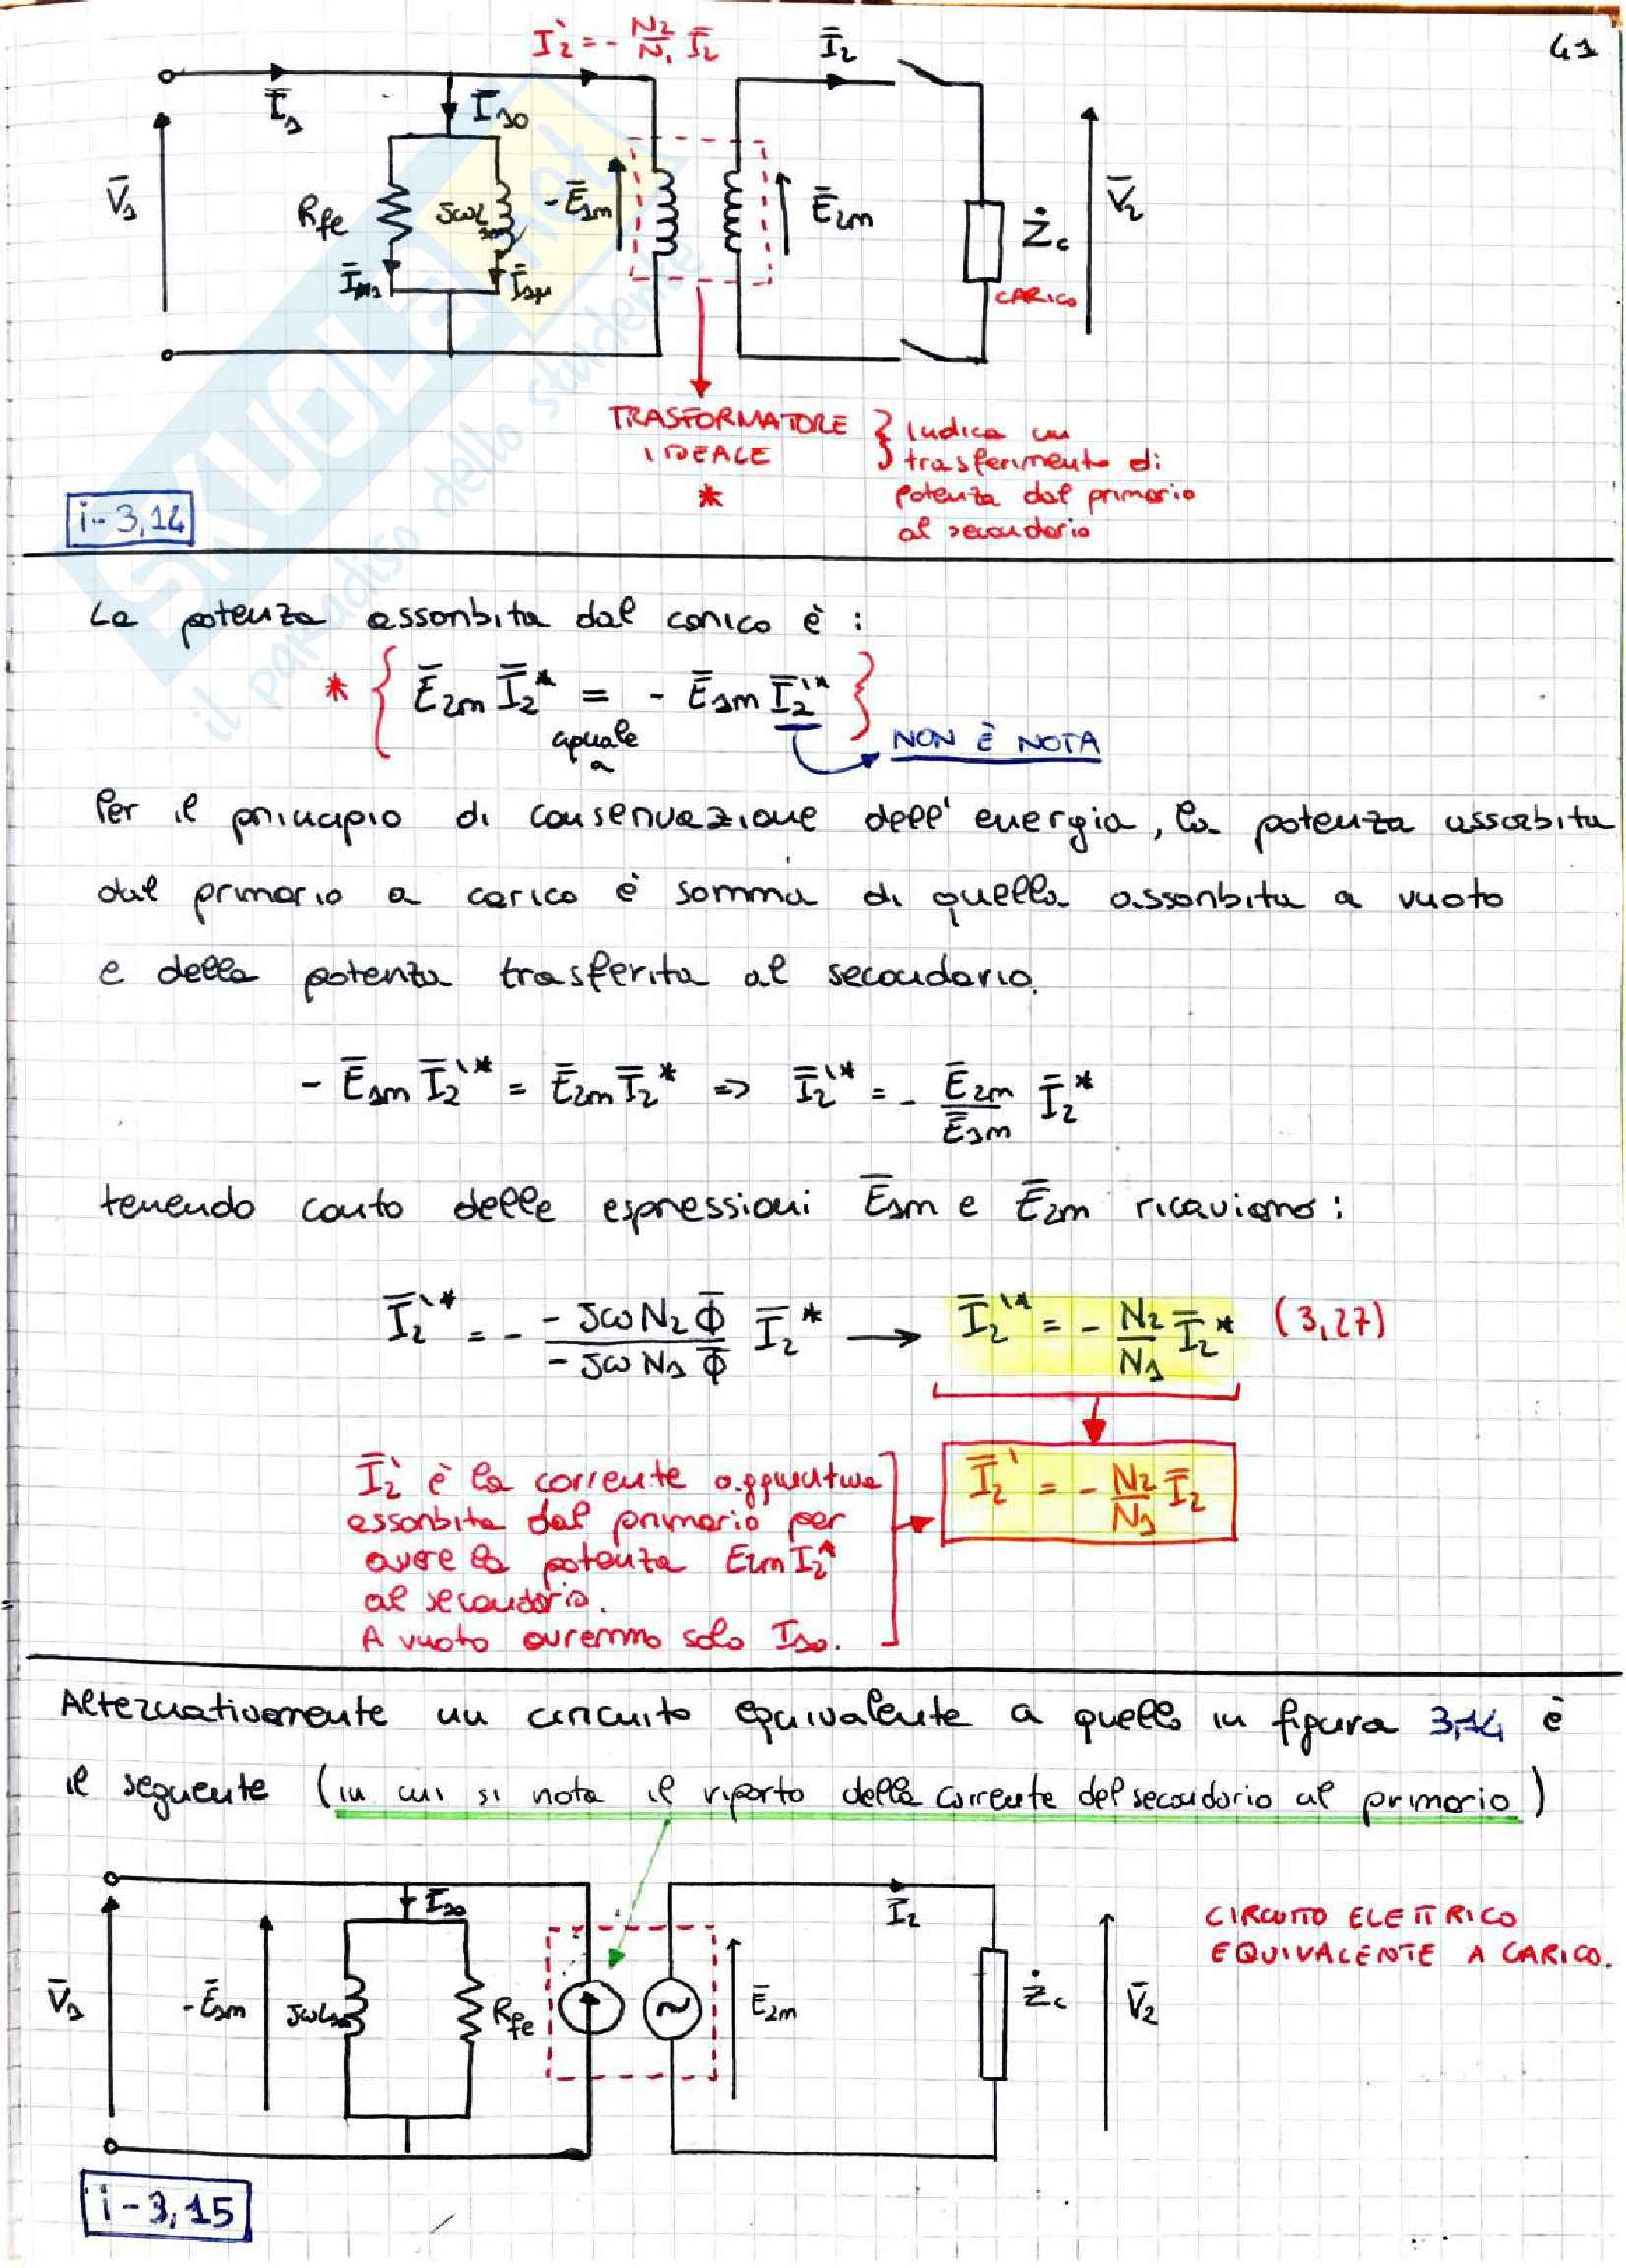 Ī₂' = - N₂/N₁ Ī₂
Ī₂
41
Ī₁
Ī₁₀
V̄₁
Rfe
jωL
-Ē₁m
Ē₂m
Żc
V̄₂
Ī₁μ
CARICO
TRASFORMATORE
IDEALE
*
indica un
trasferimento di
potenza dal primario
al secondario
i-3,14
SKUOLA.net
il paradiso dello studente
La potenza assorbita dal carico è :
* { Ē₂m Ī₂* = - Ē₁m Ī₂'* }
uguale
a
NON È NOTA
Per il principio di conservazione dell' energia, la potenza assorbita
dal primario a carico è somma di quella assorbita a vuoto
e della potenza trasferita al secondario.
- Ē₁m Ī₂'* = Ē₂m Ī₂* => Ī₂'* = - Ē₂m/Ē₁m Ī₂*
tenendo conto delle espressioni Ē₁m e Ē₂m ricaviamo :
Ī₂'* = - (- jω N₂ Φ̄)/(- jω N₁ Φ̄) Ī₂* → Ī₂'* = - N₂/N₁ Ī₂* (3,27)
Ī₂' = - N₂/N₁ Ī₂
Ī₂' è la corrente aggiuntiva
assorbita dal primario per
avere la potenza E₂m I₂*
al secondario.
A vuoto avremmo solo I₁₀.
Alternativamente un circuito equivalente a quello in figura 3,14 è
il seguente (in cui si nota il riporto della corrente del secondario al primario)
Ī₁₀
Ī₂
CIRCUITO ELETTRICO
EQUIVALENTE A CARICO.
V̄₁
-Ē₁m
jωL
Rfe
Ē₂m
Żc
V̄₂
i-3,15